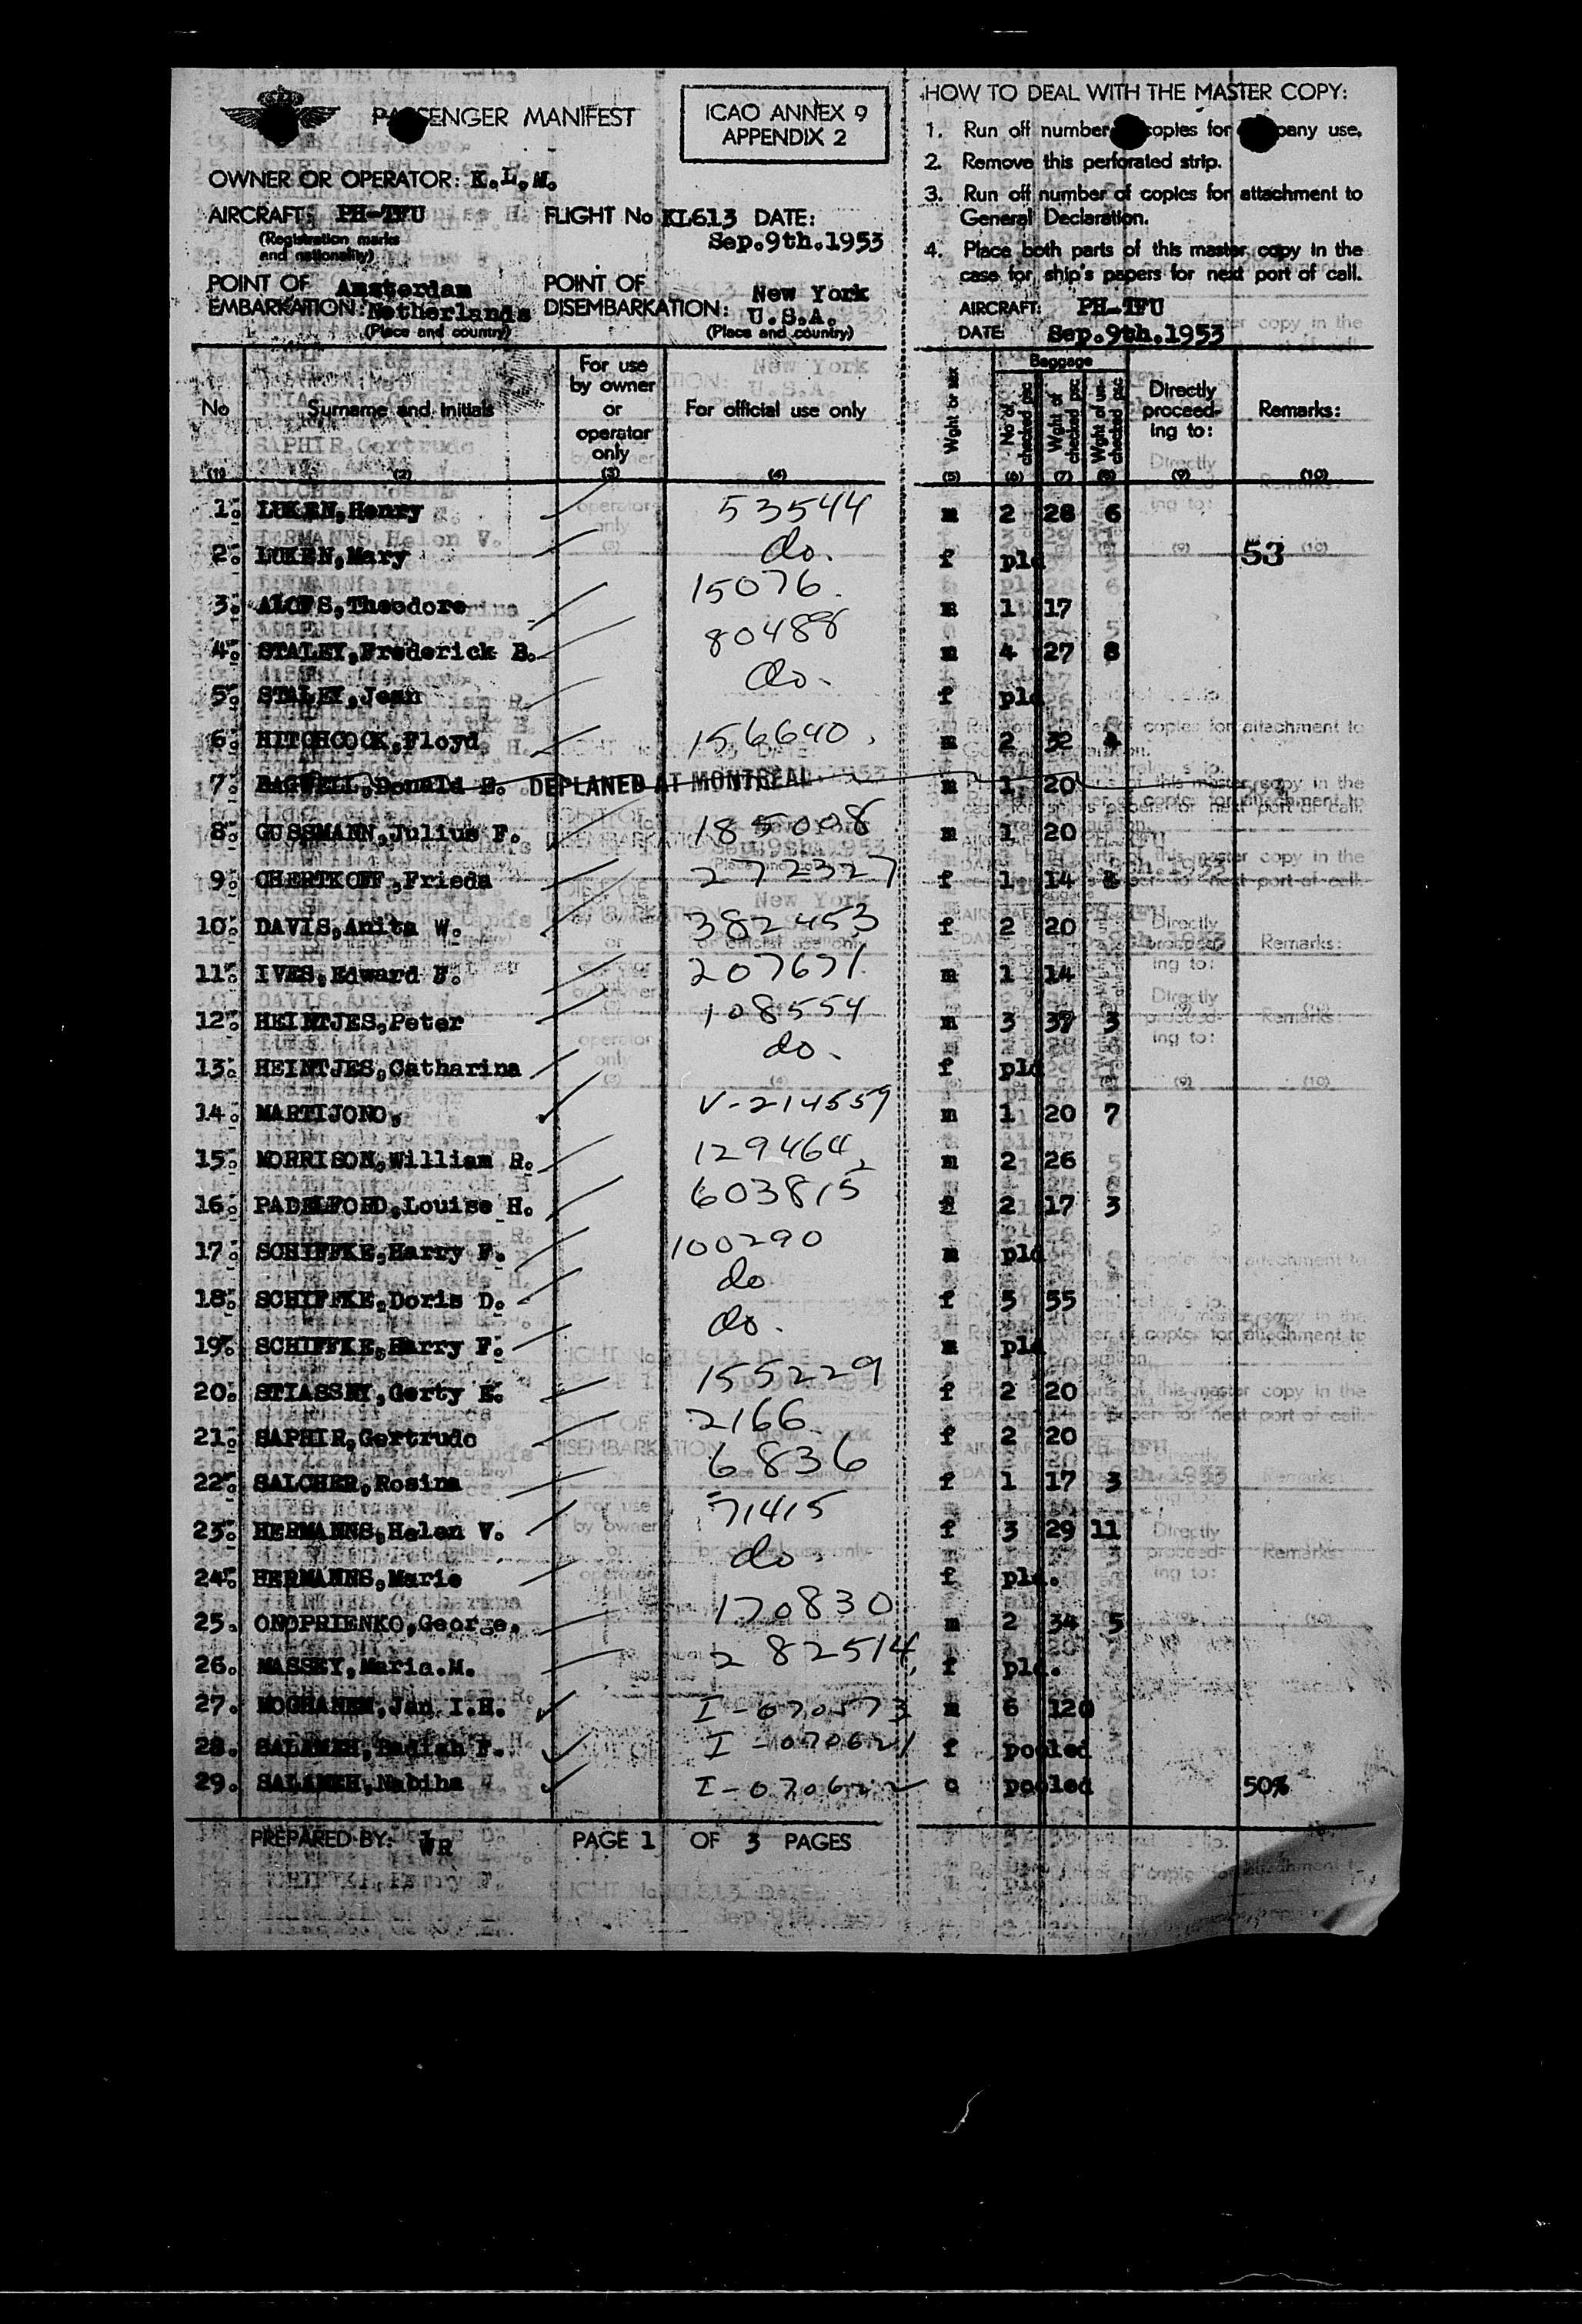 PASSENGER MANIFEST
ICAO ANNEX 9
APPENDIX 2
OWNER OR OPERATOR: K.L.M.
AIRCRAFT: PH-TFU
(Registration marks
and nationality)
FLIGHT No KL613 DATE:
Sep.9th.1953
POINT OF
EMBARKATION: Amsterdam
Netherlands
(Place and country)
POINT OF
DISEMBARKATION: New York
U.S.A.
(Place and country)
HOW TO DEAL WITH THE MASTER COPY:
1. Run off number copies for company use.
2. Remove this perforated strip.
3. Run off number of copies for attachment to
General Declaration.
4. Place both parts of this master copy in the
case for ship's papers for next port of call.
AIRCRAFT: PH-TFU
DATE Sep.9th.1953
No Surname and initials For use by owner or operator only For official use only Wght or sex Baggage No of checked psc Wght of checked psc Wght of un-checked psc Directly proceed-ing to: Remarks:
(1) (2) (3) (4) (5) (6) (7) (8) (9) (10)
1. LUKEN, Henry 53544 m 2 28 6
2. LUKEN, Mary do. f pld 53
3. ALOFS, Theodore 15076. m 1 17
4. STALEY, Frederick B. 80488 m 4 27 8
5. STALEY, Jean do. f pld
6. HITCHCOCK, Floyd 156640. m 2 32 4
7. BAGWELL, Donald DEPLANED AT MONTREAL m 1 20
8. GUSSMANN, Julius F. 185008 m 1 20
9. CHERTKOFF, Frieda 272327 f 1 14
10. DAVIS, Anita W. 382453 f 2 20
11. IVES, Edward 207671 m 1 14
12. HEINTJES, Peter 108554 m 3 37 3
13. HEINTJES, Catharina do. f pld
14. MARTIJONO, V-214559 m 1 20 7
15. MORRISON, William R. 129464 m 2 26
16. PADELFORD, Louise H. 603815 f 2 17 3
17. SCHIFFKE, Harry F. 100290 m pld
18. SCHIFFKE, Doris D. do f 5 55
19. SCHIFFKE, Harry F. do. m pld
20. STIASSNY, Gerty E. 155229 f 2 20
21. SAPHIR, Gertrude 2166 f 2 20
22. SALCHER, Rosina 6836 f 1 17 3
23. HERMANNS, Helen V. 71415 f 3 29 11
24. HERMANNS, Marie do. f pld.
25. ONOPRIENKO, George. 170830 m 2 34 5
26. MASSEY, Maria.M. 282514 f pld.
27. MOGHANEM, Jan I.H. I-070573 m 6 120
28. SALAMEH, Badiah F. I-070621 f pooled
29. SALAMEH, Nabiha I-070622 c pooled 50%
PREPARED BY: WR PAGE 1 OF 3 PAGES